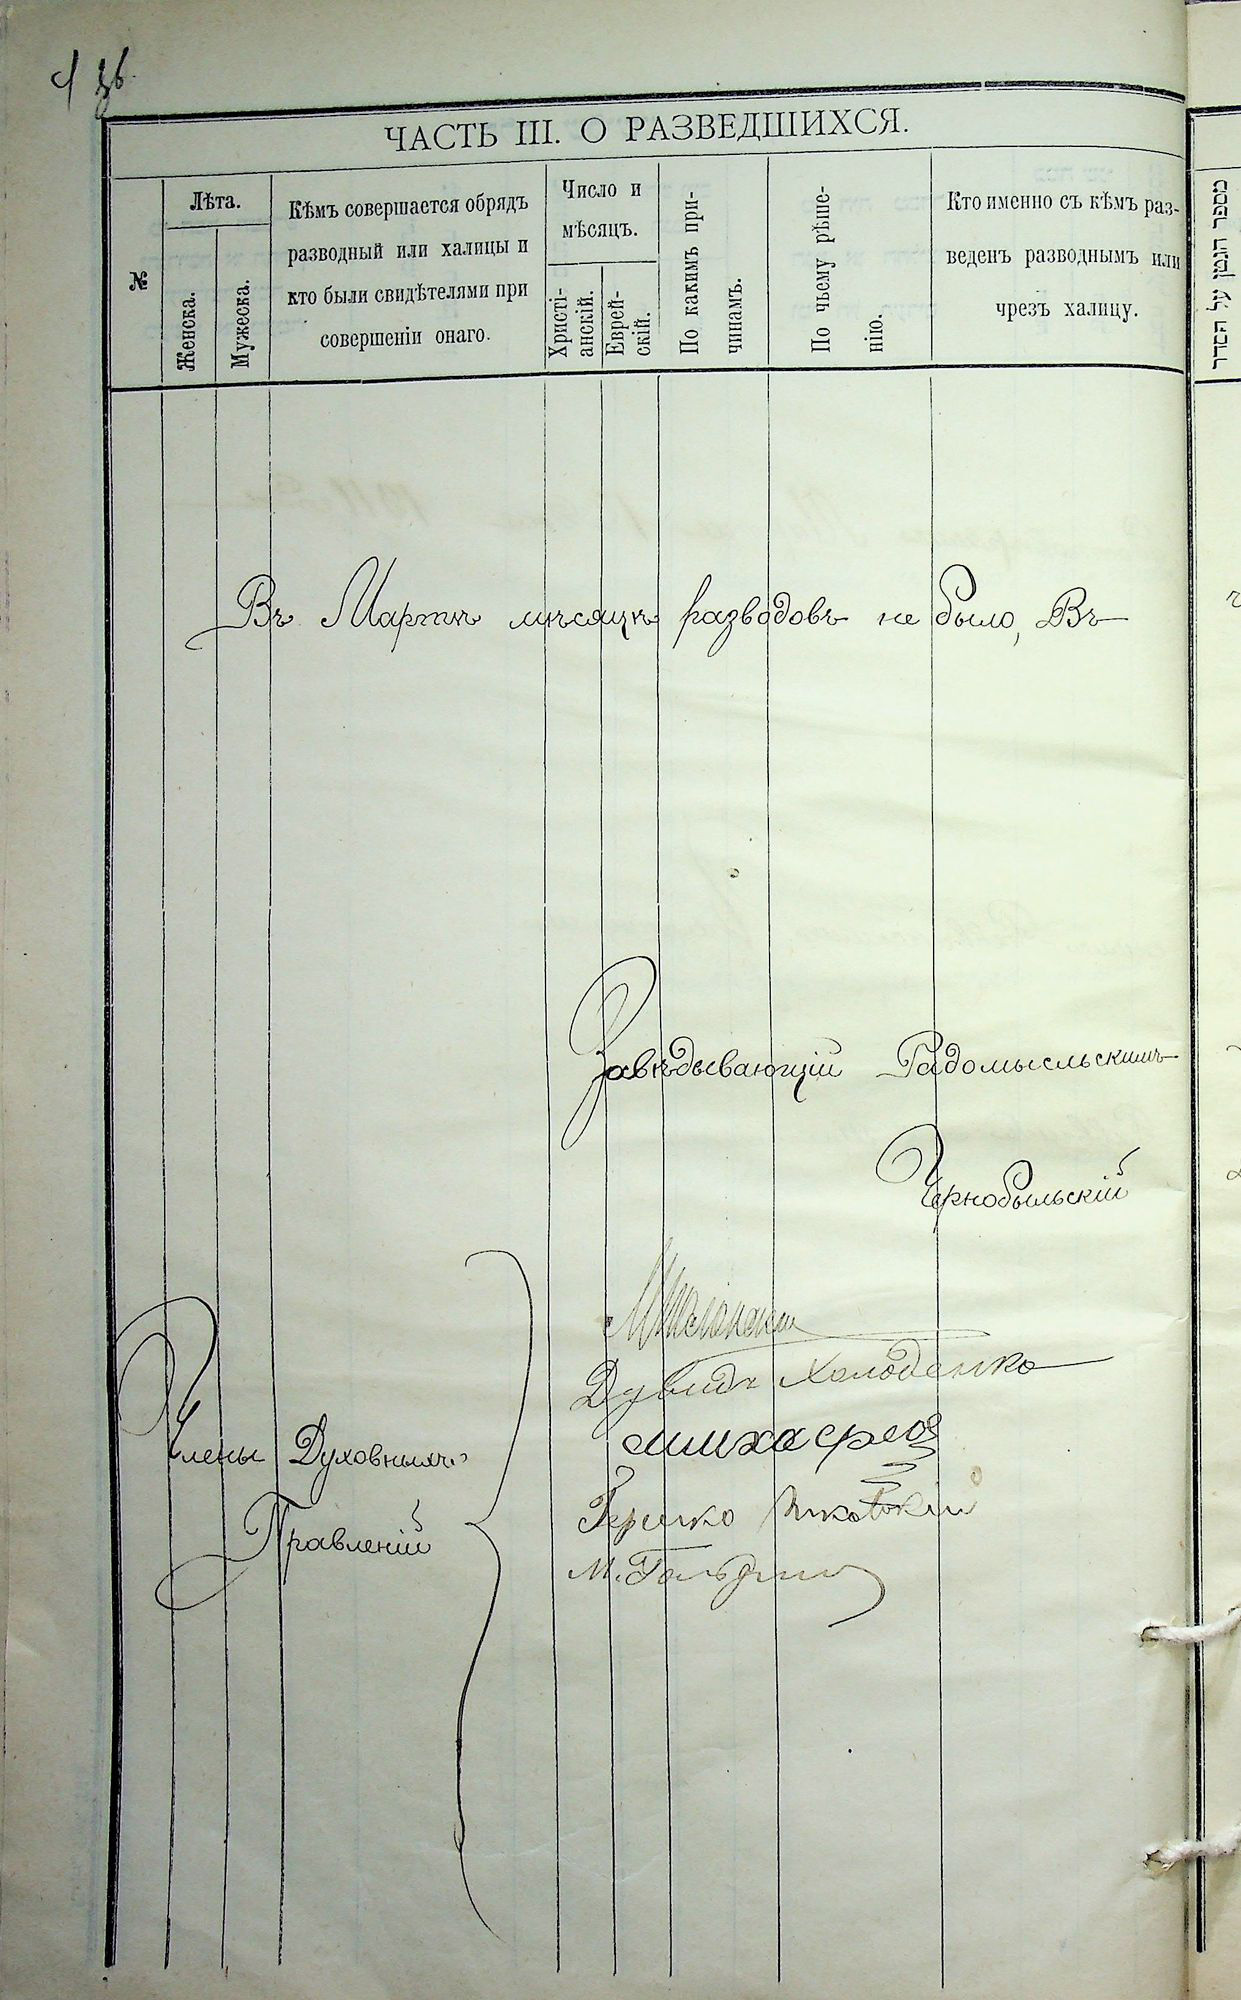 ЧАСТЬ III. О РАЗВЕДШИХСЯ.
№
Лѣта.
Женска.
Мужеска.
Кѣмъ совершается обрядъ
разводный или халицы и
кто были свидѣтелями при
совершеніи онаго.
Число и
мѣсяцъ.
Христі-
анскій.
Еврей-
скій.
По какимъ при-
чинамъ.
По чьему рѣше-
нію.
Кто именно съ кѣмъ раз-
веденъ разводнымъ или
чрезъ халицу.
מספר הגטין על הסדר
Въ Мартѣ мѣсяцѣ разводовъ не было, Въ
Завѣдывающій Радомысльскимъ
Чернобыльскій
Члены Духовныхъ
Правленій
Дувидъ Холоденко
Гершко
М. Гольдин